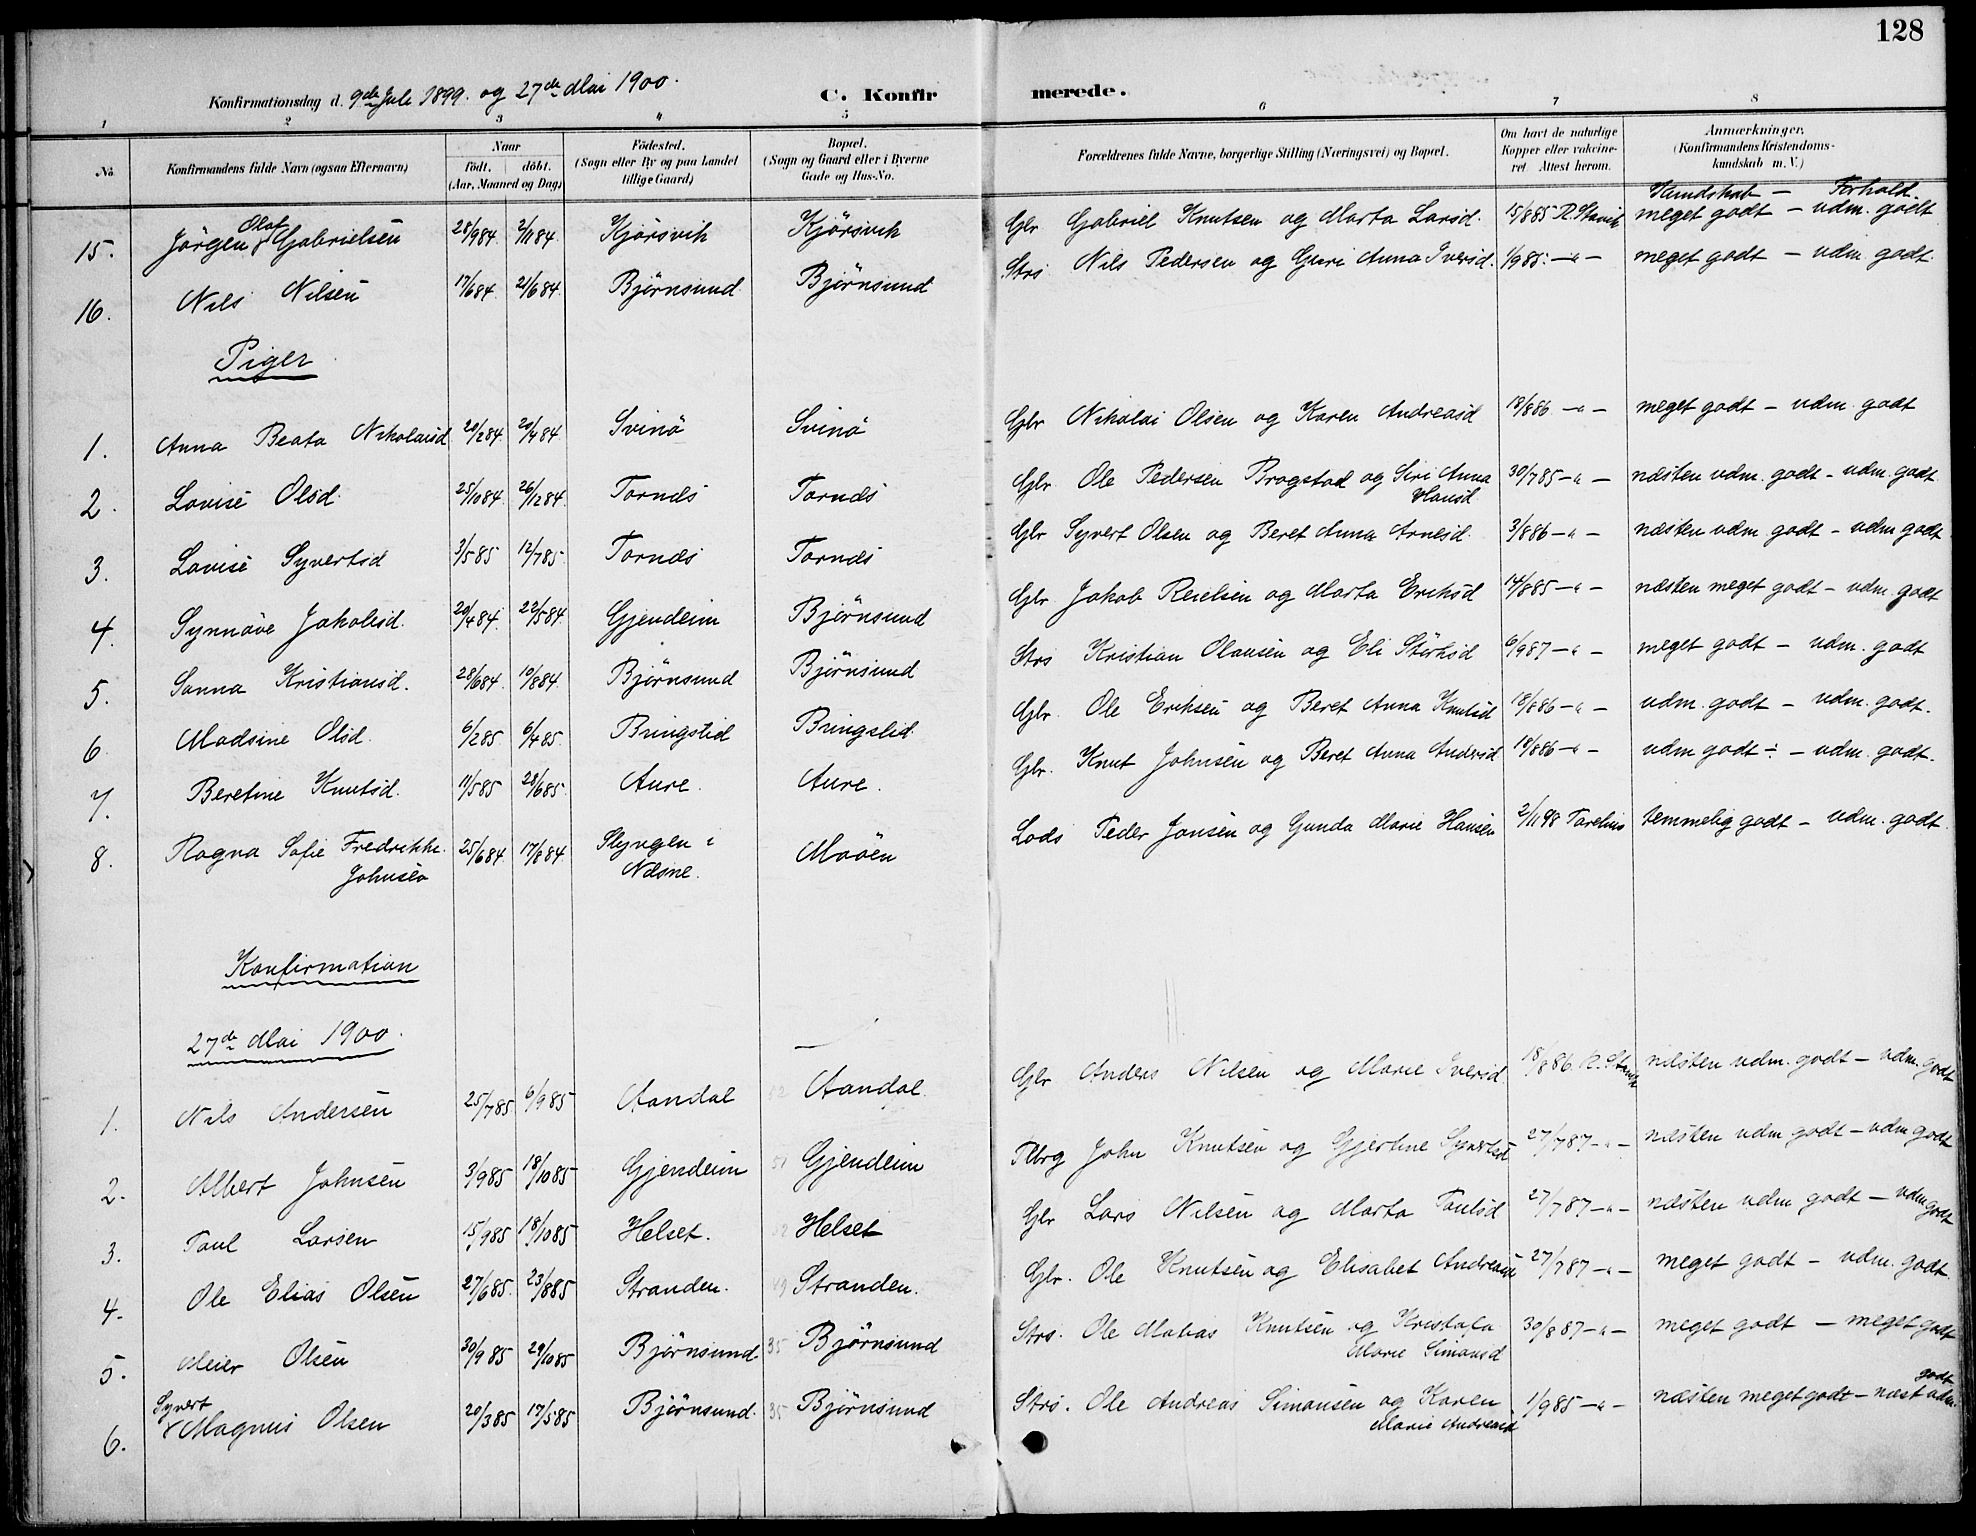 128
Konfirmationsdag d. 9de Juli 1899. og 27de Mai 1900. C. Konfirmerede.
1 2 3 4 5 6 7 8
No. Konfirmandens fulde Navn (ogsaa Efternavn) Naar födt. döbt. (Aar, Maaned og Dag) Födested. (Sogn eller By og paa Landet tillige Gaard) Bopæl. (Sogn og Gaard eller i Byerne Gade og Hus-No. Forældrenes fulde Navne, borgerlige Stilling (Næringsvei) og Bopæl. Om havt de naturlige Kopper eller vakcineret. Attest herom. Anmærkninger. (Konfirmandens Kristendomskundskab m. V.)
Kundskab — Forhold.
15. Jörgen Olaf Gabrielsen 28/9 84. 2/11 84. Kjörsvik Kjörsvik Gbr Gabriel Knutsen og Marta Larsd. 15/8 85 R. Stavik meget godt — udm. godt
16. Nils Nilsen 17/6 84. 21/6 84. Björnsund Björnsund Strs Nils Pedersen og Guri Anna Iversd. 1/9 85. — " — meget godt — udm. godt.
Piger
1. Anna Beata Nikolaisd 20/2 84. 20/4 84. Svinö Svinö Gbr Nikolai Olsen og Karen Andreasd 18/8 86 — " — meget godt — udm. godt
2. Lovise Olsd. 25/10 84. 26/12 84. Tornæs Tornæs Gbr Ole Pedersen Brogstad og Siri Anna Hansd 30/7 85 — " — næsten udm. godt — udm. godt.
3. Lovise Syvertsd 3/5 85 12/7 85. Tornæs Tornæs Gbr Syvert Olsen og Beret Anna Arnesd. 3/8 86 — " — næsten udm. godt — udm. godt
4. Synnöve Jakobsd. 20/4 84. 22/5 84. Gjendeim Björnsund Gbr Jakob Reielsen og Marta Eriksd 14/8 85 — " — næsten meget godt — udm. godt
5. Sanna Kristiansd. 28/6 84. 10/8 84. Björnsund Björnsund Strs Kristian Olausen og Eli Störksd 6/9 87 — " — meget godt — udm. godt
6. Madsine Olsd. 6/2 85. 6/4 85. Bringslid Bringslid Gbr. Ole Eriksen og Beret Anna Knutsd 18/8 86 — " — udm. godt — udm. godt.
7. Beretine Knutsd. 11/5 85 28/6 85. Aure. Aure. Gbr. Knut Johnsen og Beret Anna Andersd 18/8 86 — " — udm godt ÷ — udm. godt.
8. Ragna Sofie Fredrikke Johnsen 25/6 84. 17/8 84. Slyngen i Næsne. Moöen Lods Peder Jonsen og Gunda Marie Hansen 2/11 98 temmelig godt — udm. godt.
Konfirmation
27de Mai 1900.
1. Nils Andersen 25/7 85. 6/9 85 Aandal Aandal. Gbr Anders Nilsen og Marie Iversd 18/8 86. R. Stavik næsten udm. godt — udm. godt
2. Albert Johnsen 3/9 85 18/10 85 Gjendeim 51 Gjendeim Plbrg John Knutsen og Gjertine Syvertsd 27/7 87 — " — næsten udm godt — udm godt
3. Paul Larsen 15/9 85 18/10 85 Helset. Helset Gbr Lars Nilsen og Marta Paulsd 27/7 87 — " — næsten udm godt — udm godt
4. Ole Elias Olsen 27/6 85. 23/8 85 Stranden. 49 Stranden. Gbr. Ole Knutsen og Elisabet Andreasd 27/7 87 — " — meget godt — udm. godt.
5. Meier Olsen 30/9 85 29/10 85 Björnsund 35 Björnsund Strs. Ole Matias Knutsen og Kristofa Marie Simonsd 30/8 87 — " — meget godt — meget godt
6. Syvert Magnus Olsen 20/3 85 17/5 85 Björnsund. 35 Björnsund Strs. Ole Andreas Simonsen og Karen Marie Andreasd 1/9 85 — " — næsten meget godt — næst udm. godt